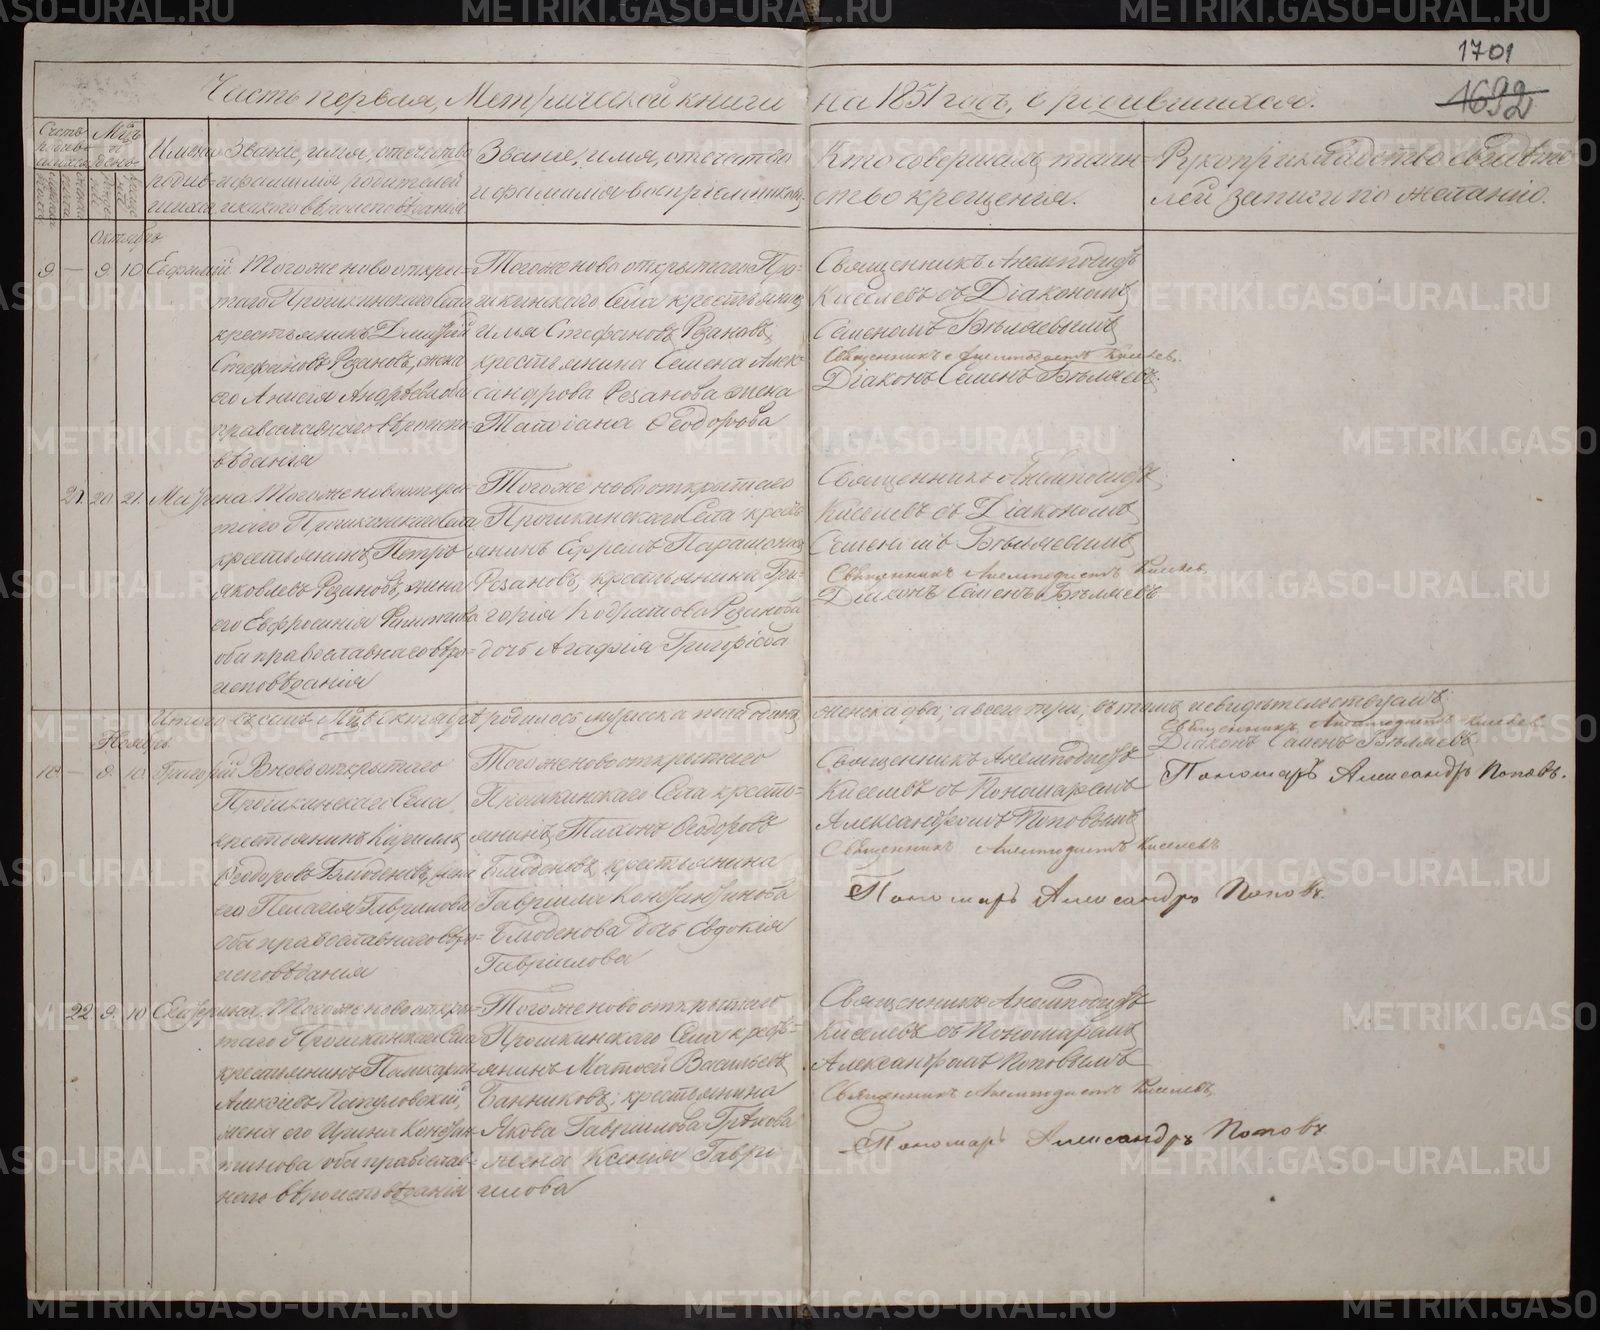 1701
1692
Часть первая, Метрической книги на 1851 годъ, о родившихся.
Имена родив-шихся
Званіе, имя, отечество и фамилія родителей и какого вѣроисповѣданія
Званіе, имя, отечество и фамилія воспріемниковъ
Кто совершалъ таин-ство крещенія.
Рукоприкладство свидѣте-лей записи по желанію.
Октябрь
9 — 9 10 Евфимій
Тогоже новооткры-
таго Прошкинскаго Села
крестьянинъ Димитрій
Стефановъ Рѣзановъ, жена
его Анисія Андрѣевна оба
православнаго вѣроиспо-
вѣданія
Тогоже новооткрытаго Про-
шкинскаго Села крестьянинъ
Илья Стефановъ Рѣзановъ,
крестьянина Семена Алек-
сандрова Рѣзанова жена
Татіана Ѳеодорова
Священникъ Анемподистъ
Киселевъ съ Діакономъ
Семеномъ Бѣляевымъ
Священникъ Анемподистъ Киселев.
Діаконъ Семенъ Бѣляевъ.
21. 20 21. Марина
Тогоже новооткры-
таго Прошкинскаго Села
крестьянинъ Петръ
Яковлевъ Рѣзановъ, жена
его Евфросинія
оба православнаго вѣро-
исповѣданія
Тогоже новооткрытаго
Прошкинскаго Села кресть-
янинъ Ефремъ
Рѣзановъ, крестьянина Гри-
горія Кодратова Рѣзанова
дочь Агафія Григорьева
Священникъ Анемподистъ
Киселевъ съ Діакономъ
Семеномъ Бѣляевымъ
Священникъ Анемподистъ Киселев
Діаконъ Семенъ Бѣляевъ
Итого въ семъ Мцѣ Октябрѣ родилось мужеска пола одинъ, женска два; а всего три; въ томъ и свидѣтельствуемъ:
Священникъ Анемподистъ Киселев
Діаконъ Семенъ Бѣляевъ
Пономарь Александръ Поповъ.
Ноябрь
10 — 9. 10 Григорій
Вновооткрытаго
Прошкинскаго Села
крестьянинъ Кириллъ
Ѳеодоровъ жена
его Пелагія Гаврилова
оба православнаго вѣро-
исповѣданія
Тогоже новооткрытаго
Прошкинскаго Села кресть-
янинъ Ѳеодоровъ
крестьянина
Гавріила
дочь Евдокія
Гавріилова
Священникъ Анемподистъ
Киселевъ съ Пономаремъ
Александромъ Поповымъ
Священникъ Анемподистъ Киселевъ
Пономарь Александръ Поповъ.
22 9. 10 Екатерина
Тогоже новооткры-
таго Прошкинскаго Села
крестьянинъ
Алексѣевъ
жена его Ирина Констан-
тинова оба православ-
наго вѣроисповѣданія
Тогоже новооткрытаго
Прошкинскаго Села кресть-
янинъ Матѳей Васильевъ
Банниковъ; крестьянина
Якова Гавріилова
жена Ксенія Гаврі-
илова
Священникъ Анемподистъ
Киселевъ съ Пономаремъ
Александромъ Поповымъ
Священникъ Анемподистъ Киселевъ
Пономарь Александръ Поповъ
METRIKI.GASO-URAL.RU